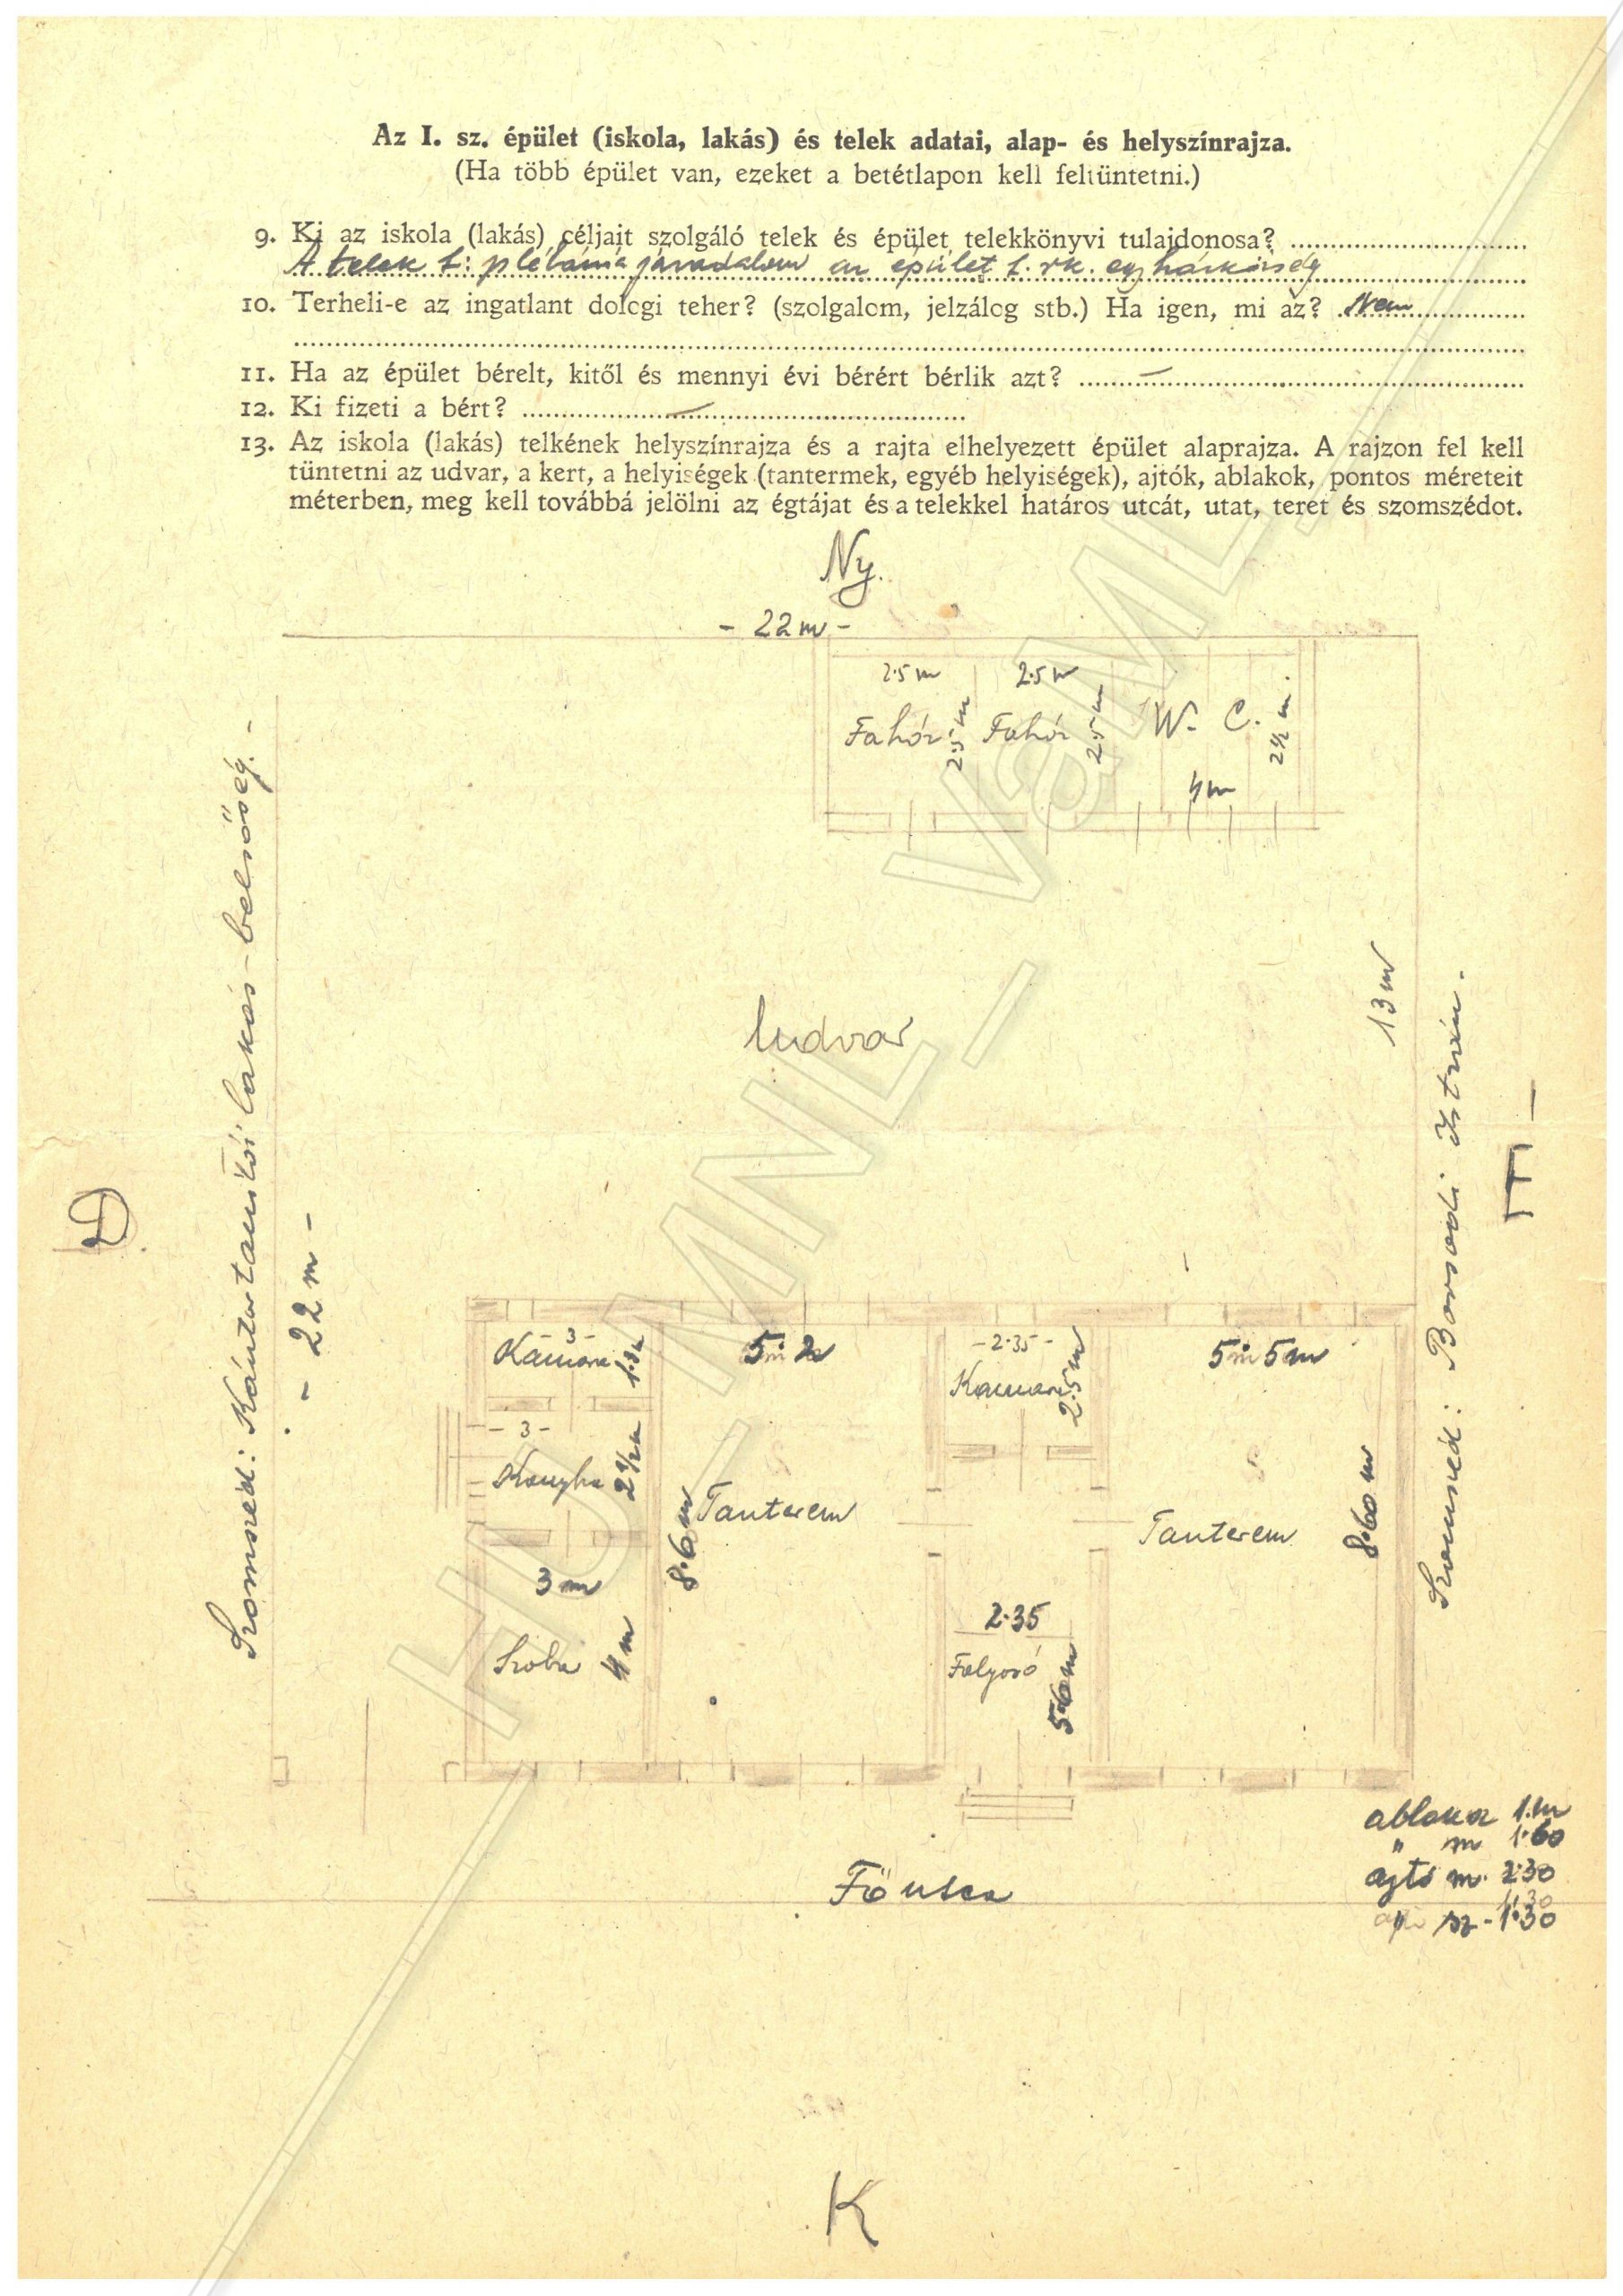 Az I. sz. épület (iskola, lakás) és telek adatai, alap- és helyszínrajza.
(Ha több épület van, ezeket a betétlapon kell feltüntetni.)
9. Ki az iskola (lakás) céljait szolgáló telek és épület telekkönyvi tulajdonosa?
A telek t: plébánia javadalom az épület t. rk. egyházközség
10. Terheli-e az ingatlant dologi teher? (szolgalom, jelzálog stb.) Ha igen, mi az? Nem
11. Ha az épület bérelt, kitől és mennyi évi bérért bérlik azt? —
12. Ki fizeti a bért? —
13. Az iskola (lakás) telkének helyszínrajza és a rajta elhelyezett épület alaprajza. A rajzon fel kell
tüntetni az udvar, a kert, a helyiségek (tantermek, egyéb helyiségek), ajtók, ablakok, pontos méreteit
méterben, meg kell továbbá jelölni az égtájat és a telekkel határos utcát, utat, teret és szomszédot.
Ny.
- 22 m -
2·5 m
2·5 m
Fahór
2·5 m
Fahór
2·5 m
W. C.
2½ m.
4 m
Udvar
13 m
Szomszéd: Kántortanítói lakás-belsőség.-
- 22 m -
D.
Szomszéd: Borsodi István.
Kamara
- 3 -
5 m
- 2·35 -
Kamara
2·5 m
5 m 5 m
- 3 -
Konyha
2½ m
8·6 m
Tanterem
Tanterem
8·60 m
3 m
Szoba
4 m
2·35
Folyosó
5·6 m
ablak sz 1.m
" m 1·60
ajtó m. 2·30
" sz - 1·30
Fő utca
K
HU - MNL - VaML